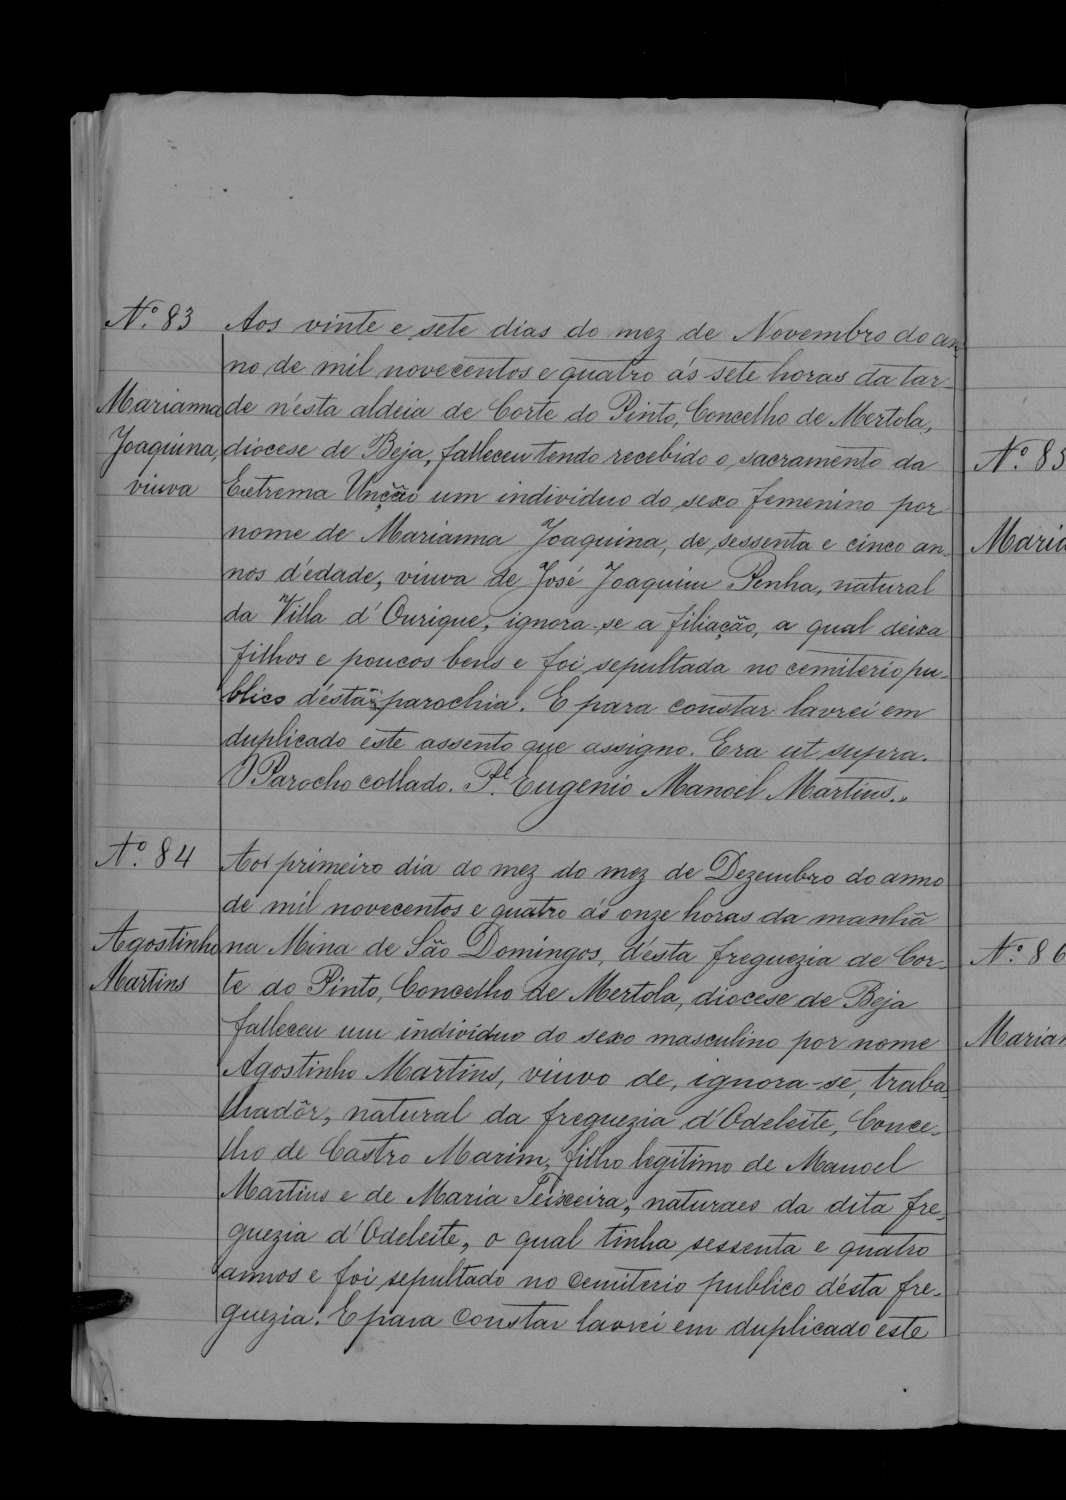 N.º 83
Marianna
Joaquina,
viuva
Aos vinte e sete dias do mez de Novembro do an-
no de mil novecentos e quatro ás sete horas da tar-
de n'esta aldeia de Corte do Pinto, Concelho de Mertola,
diocese de Beja, falleceu tendo recebido o sacramento da
Extrema Uncção um individuo do sexo femenino por
nome de Marianna Joaquina, de sessenta e cinco an-
nos d'edade, viuva de José Joaquim Penha, natural
da Villa d'Ourique, ignora-se a filiação, a qual deixa
filhos e poucos bens e foi sepultada no cemiterio pu-
blico d'esta parochia. E para constar lavrei em
duplicado este assento que assigno. Era ut supra.
O Parocho collado. P.e Eugenio Manoel Martins.
N.º 84
Agostinho
Martins
Aos primeiro dia do mez do mez de Dezembro do anno
de mil novecentos e quatro ás onze horas da manhã
na Mina de São Domingos, d'esta freguezia de Cor-
te do Pinto, Concelho de Mertola, diocese de Beja
falleceu um individuo do sexo masculino por nome
Agostinho Martins, viuvo de, ignora-se, traba-
lhadôr, natural da freguezia d'Odeleite, Conce-
lho de Castro Marim, filho legitimo de Manoel
Martins e de Maria Teixeira, naturaes da dita fre-
guezia d'Odeleite, o qual tinha sessenta e quatro
annos e foi sepultado no cemiterio publico d'esta fre-
guezia. E para constar lavrei em duplicado este
N.º 85
Maria
N.º 86
Marian